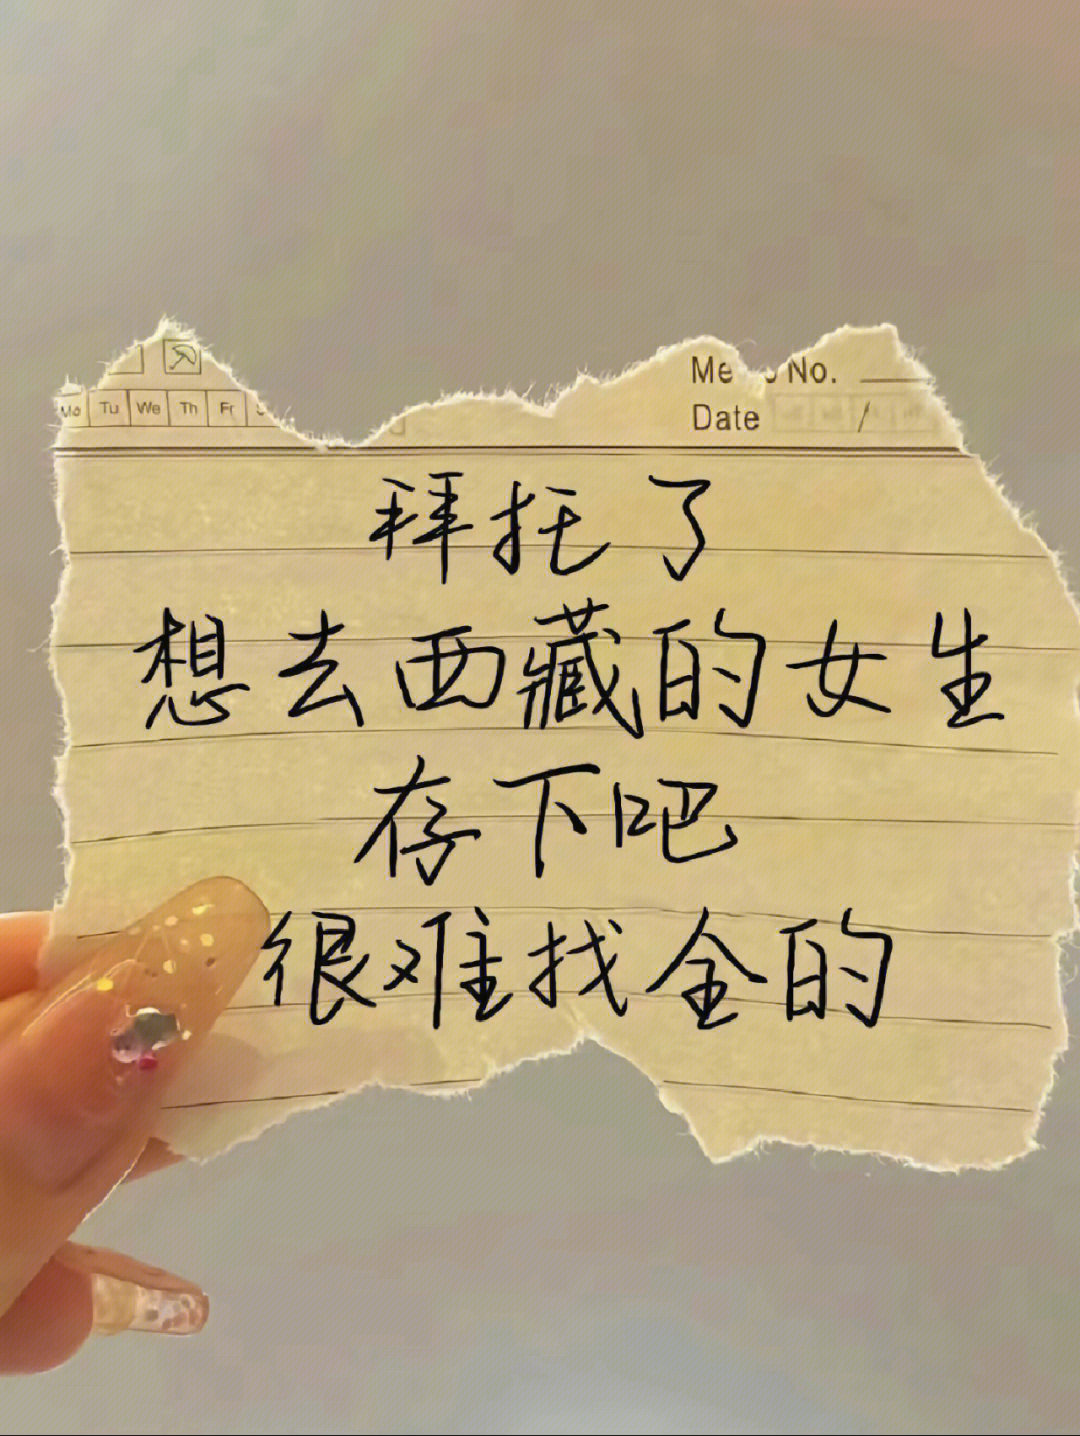 Mo Tu We Th Fr
No.
Date /
拜托了
想去西藏的女生
存下吧
很难找全的